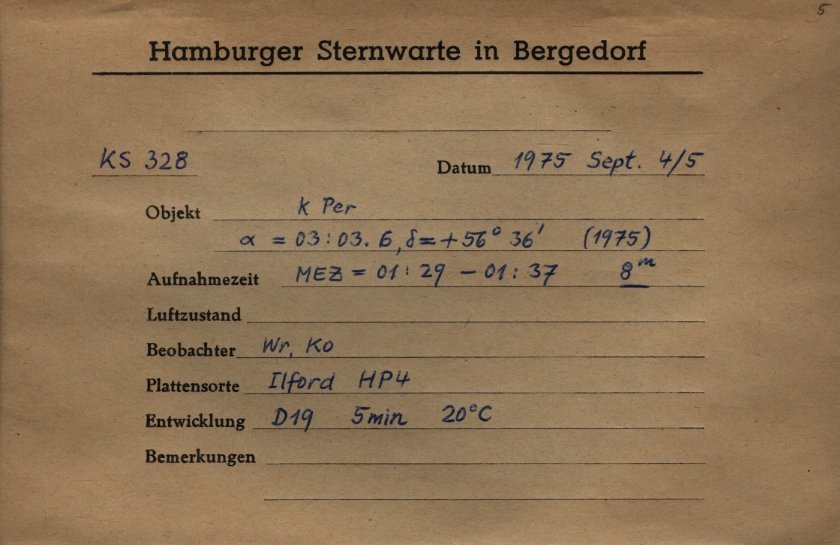 5
Hamburger Sternwarte in Bergedorf
KS 328 Datum 1975 Sept. 4/5
Objekt k Per
α = 03:03.6, δ = +56° 36' (1975)
Aufnahmezeit MEZ = 01:29 – 01:37 8ᵐ
Luftzustand
Beobachter Wr, Ko
Plattensorte Ilford HP4
Entwicklung D19 5min 20°C
Bemerkungen